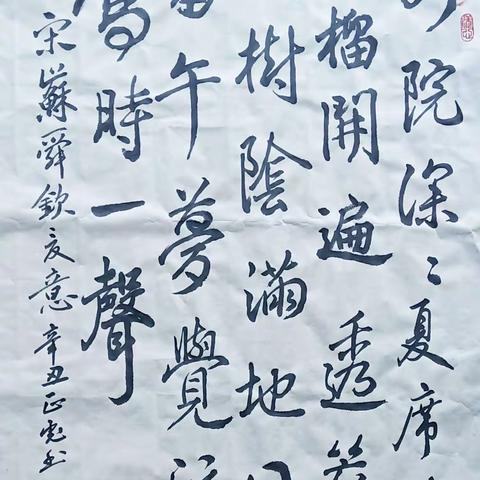 院深〻夏席
榴開遍透
樹陰滿地
午夢覺
時一聲
宋蘇舜欽夏意辛丑正彪书